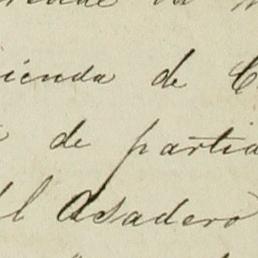 ienda de C
de partid
el Asadero